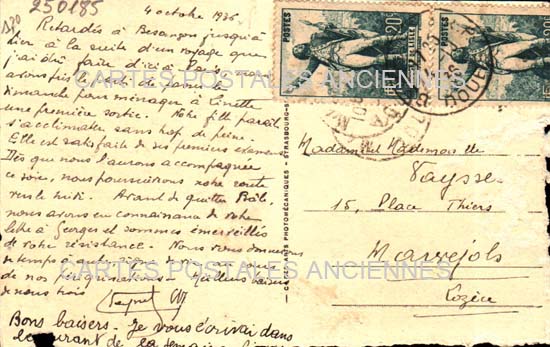 250185
4 octobre 1936
Retardés à Besançon jusqu'à
hier à la suite d'un voyage que
j'ai dû faire d'ici à Paris, nous
avons pris de samedi
dimanche pour ménager à Linette
une première sortie. Notre fille paraît
s'acclimater sans trop de peine.
Elle est satisfaite de ses premiers examens.
Dès que nous l'aurons accompagnée
ce soir, nous poursuivrons notre route
vers le midi. Avant de quitter Bâle,
nous avons eu connaissance de votre
lettre à Georges et sommes émerveillés
de votre résistance. Nous vous donnerons
de nos pérégrinations. baisers
de nous trois
Bons baisers. Je vous écrirai dans
le courant de la semaine
POSTES
20c
POSTES
CARTES POSTALES ANCIENNES
DOUET
Madame et Mademoiselle
Vaysse
15, Place Thiers
Marvejols
Lozère
PHOTOMÉCANIQUES - STRASBOURG
CARTES POSTALES ANCIENNES